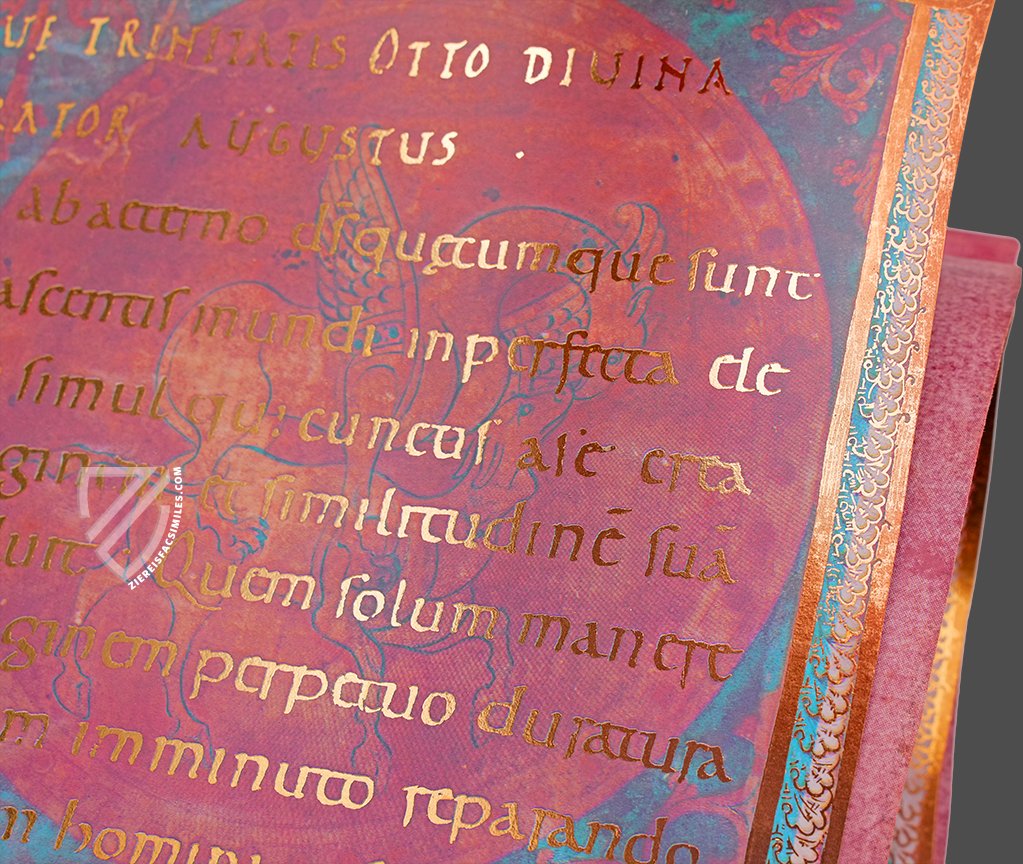 UE TRINITATIS OTTO DIVINA
RATOR AUGUSTUS .
ab aeterno d̄s quaecumque sunt
ascentis mundi inperfecta ele
simul qui cunctos
et similitudinē suā
Quem solum manere
ginem perpetuo duratura
m imminuto reparando
m homini
ZIEREISFACSIMILES.COM